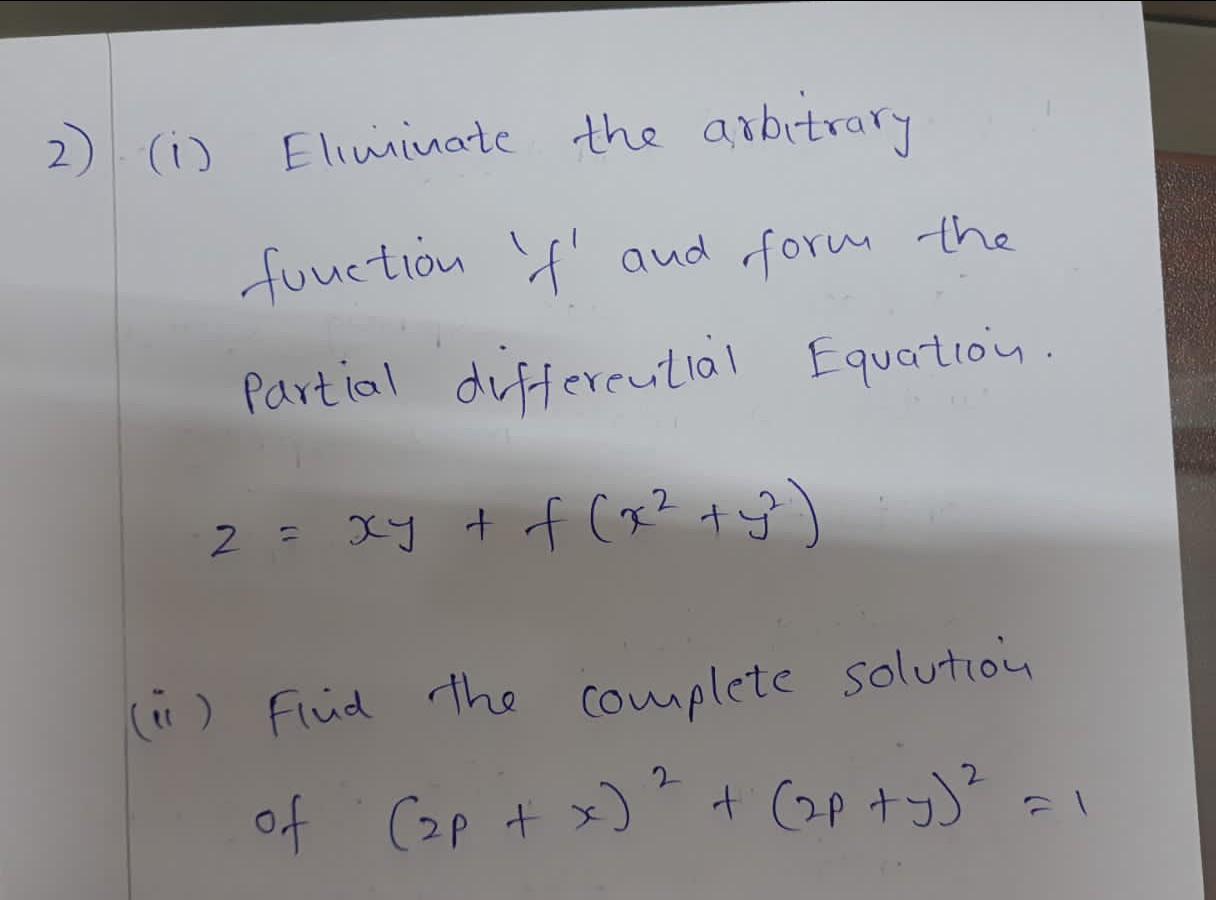 2) (i) Eliminate the arbitrary
function 'f' and form the
Partial differential Equation.
z = xy + f(x² + y²)
(ii) Find the complete solution
of (2p + x)² + (2p + y)² = 1